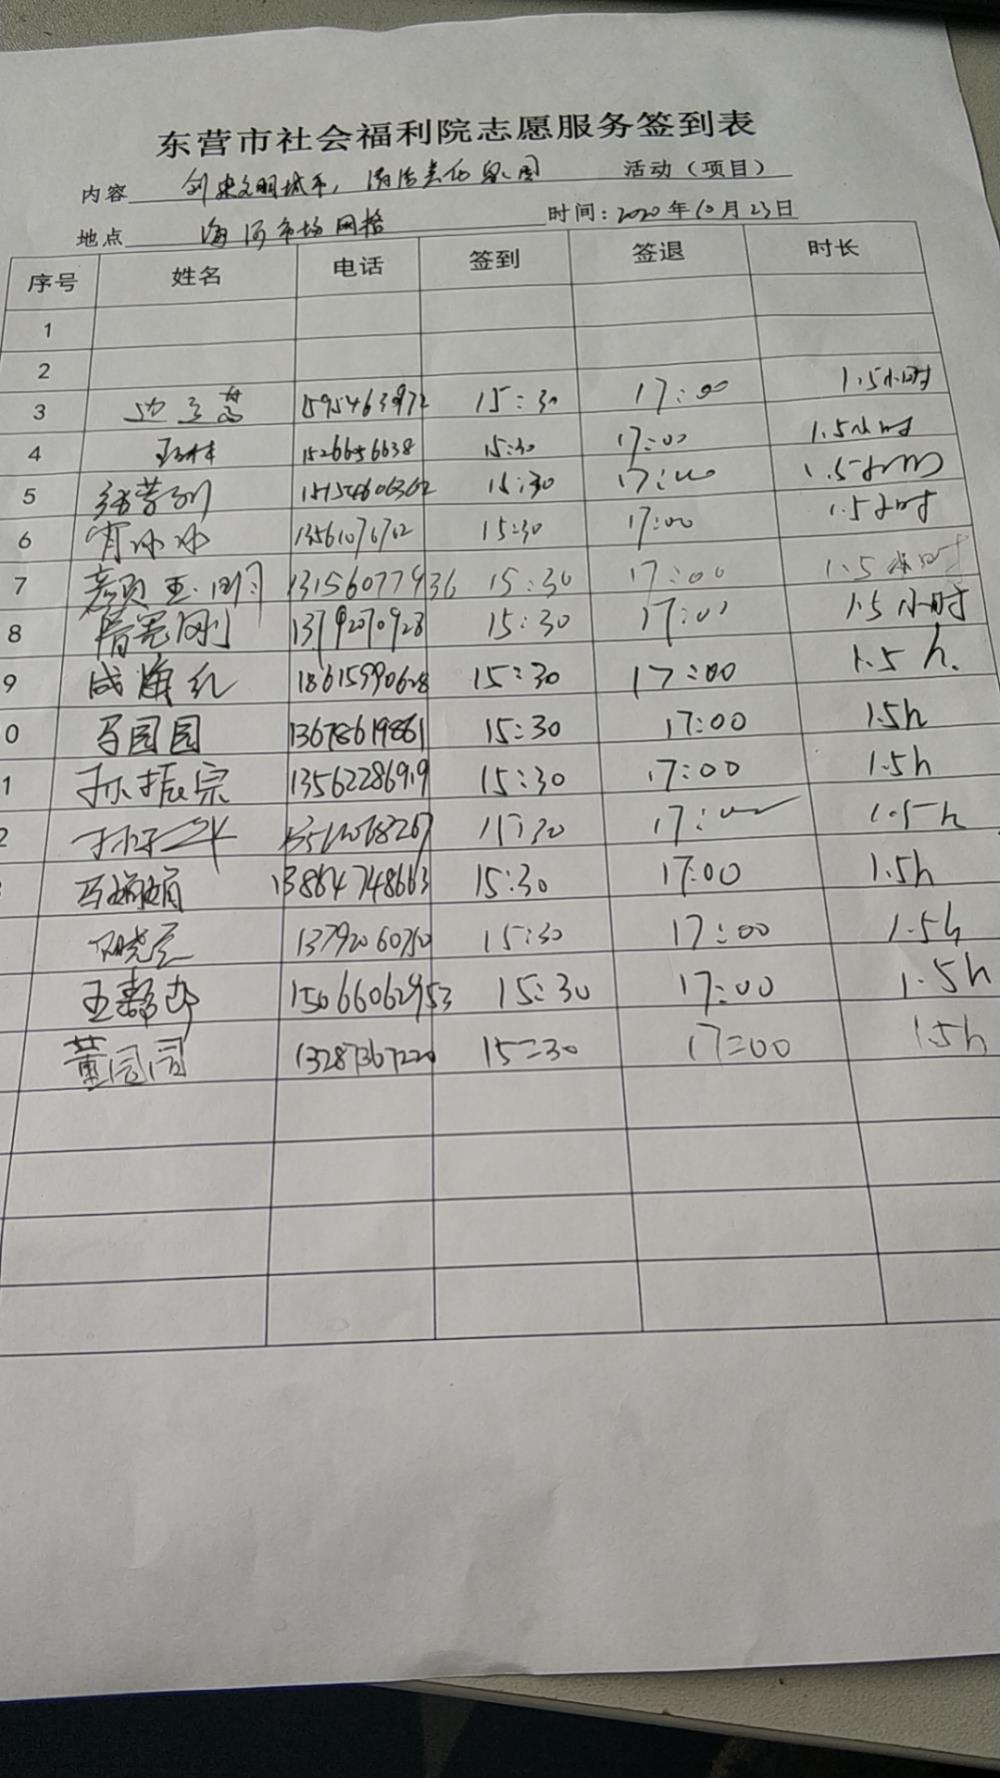 东营市社会福利院志愿服务签到表
内容 创建文明城市，清洁 活动（项目）
地点 海河市场网格 时间：2020年10月23日
序号 姓名 电话 签到 签退 时长
1
2
3 15954639972 15:30 17:00 1.5小时
4 1526656638 15:30 17:00 1.5小时
5 15154606362 15:30 17:00 1.5小时
6 宵冰冰 13561076702 15:30 17:00 1.5小时
7 颜亚明 13156077936 15:30 17:00 1.5小时
8 13792070928 15:30 17:00 1.5小时
9 成海红 18615990628 15:30 17:00 1.5h.
0 马园园 13678619861 15:30 17:00 1.5h
1 孙振宗 13562286919 15:30 17:00 1.5h
2 15:30 17:00 1.5h
13864748663 15:30 17:00 1.5h
13792060750 15:30 17:00 1.5h
15066062953 15:30 17:00 1.5h
董同同 13287367220 15:30 17:00 1.5h